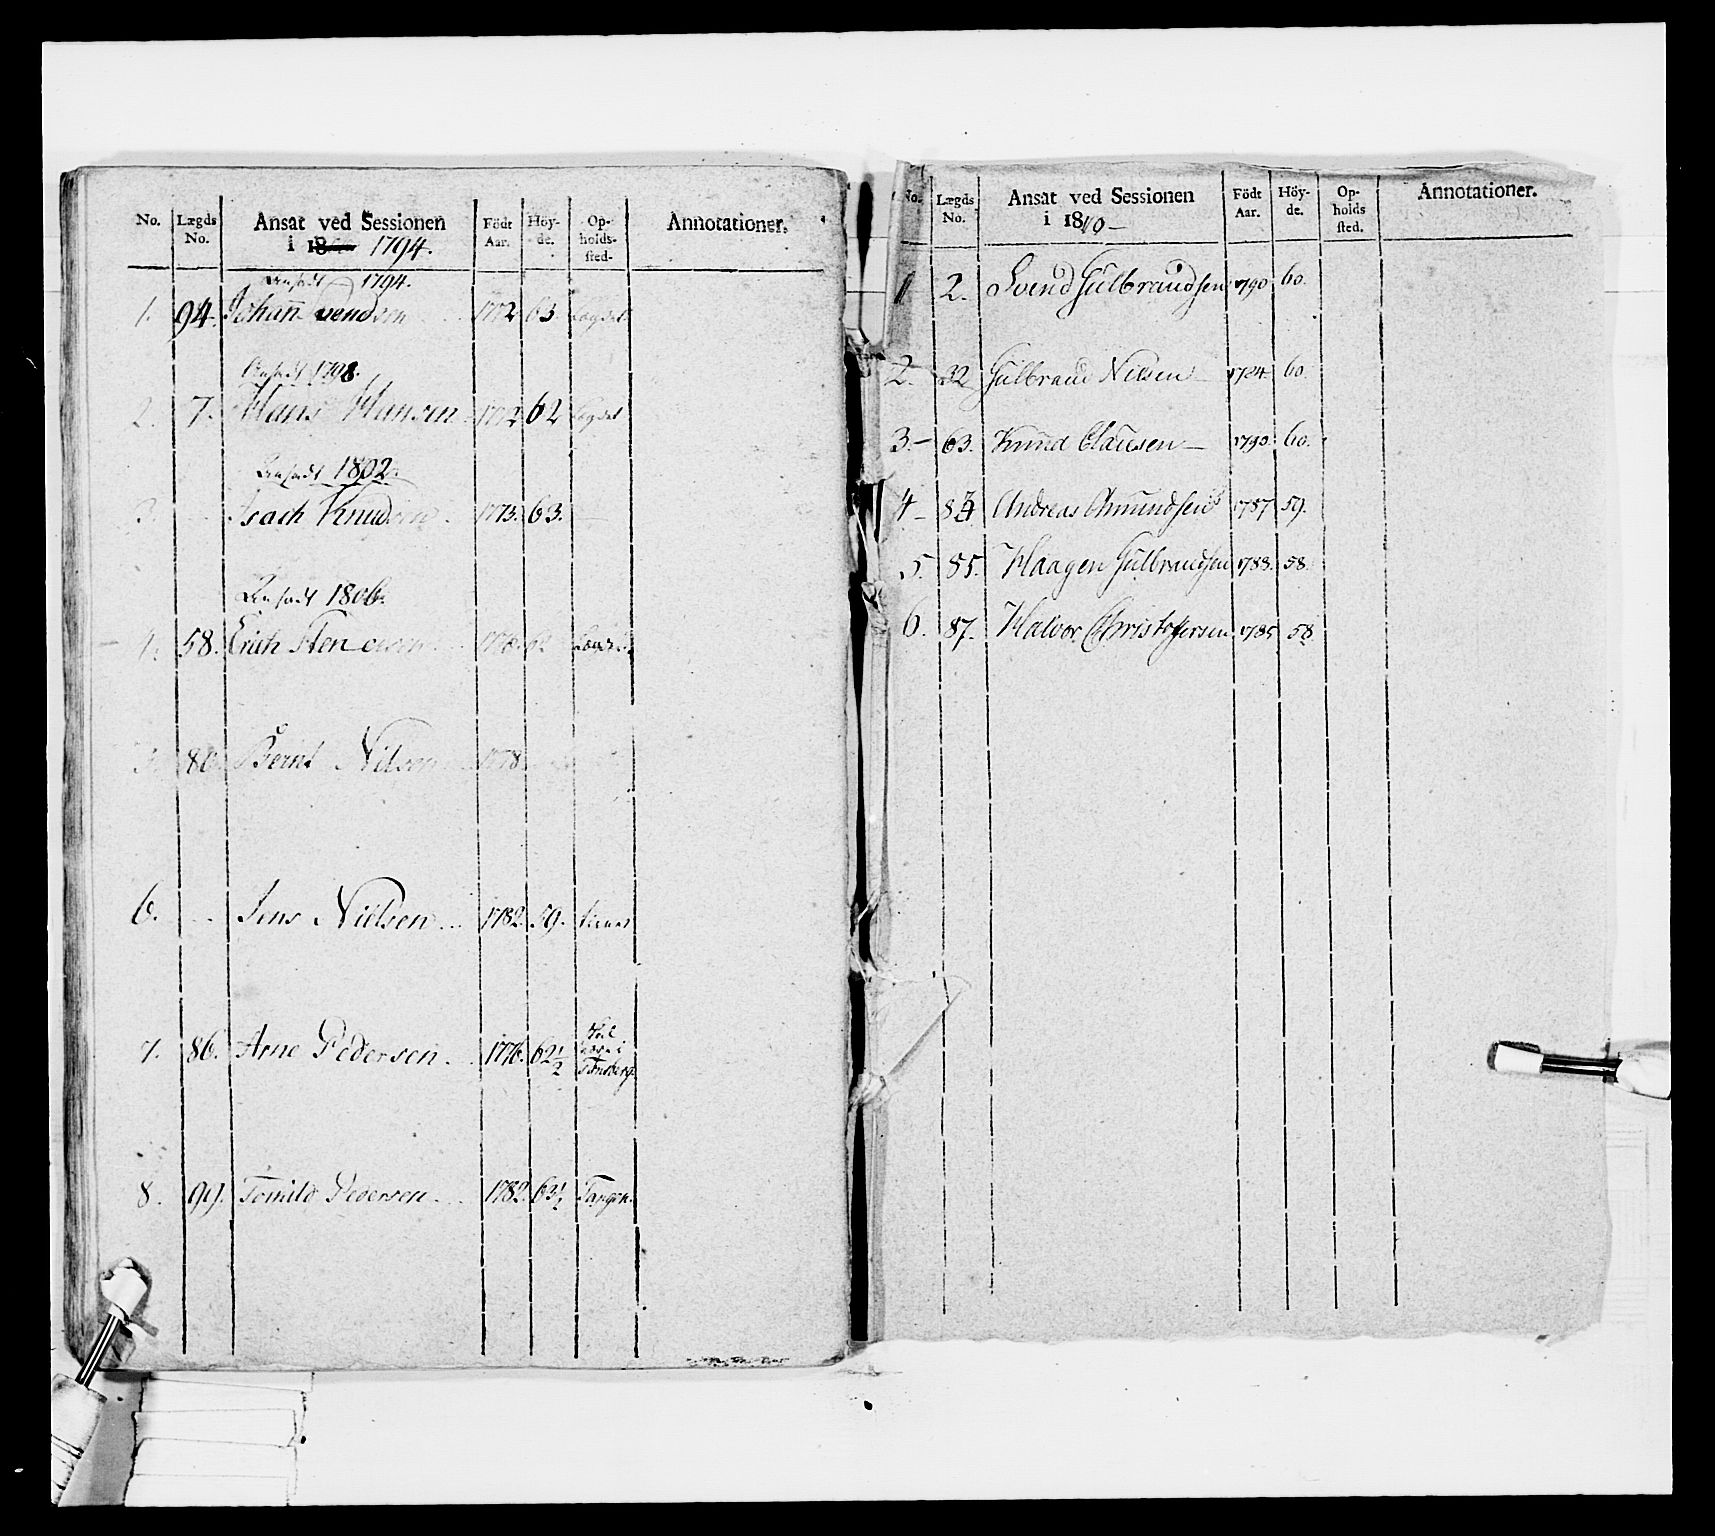 No. Lægds No. Ansat ved Sessionen i 18 1794. Födt Aar. Höy-de. Op-holds-sted. Annotationer.
Ansadt 1794.
1. 94. Johan 1772 63. Lægdet
Ansadt 1798.
2. 7. Hans Hansen 1772 62 Lægdet
Ansadt 1802.
3. Isach Knudsen. 1773. 63.
Ansadt 1806.
4. 58. Erich 62 Lægdet
5. 86. Bernt Nilsen 1778.
6. Jens Nielsen 1782. 59.
7. 86. Arne Pedersen. 1776. 62 1/2 Tønsberg.
8. 99. Tomild Pedersen. 1782. 63 1/2 Tangen.
No. Lægds No. Ansat ved Sessionen i 1810 — Födt Aar. Höy-de. Op-holds sted. Annotationer.
1 2. Svend Gulbrandsen 1790 60.
2. 32 Gulbrand Nilsen — 1784. 60.
3. — 63. Knud Clausen — 1790. 60.
4 — Andreas Amundsen 1787 59.
5. 85. Haagen Gulbrandsen 1788. 58.
6. 87. Halvor Christophersen 1785 58